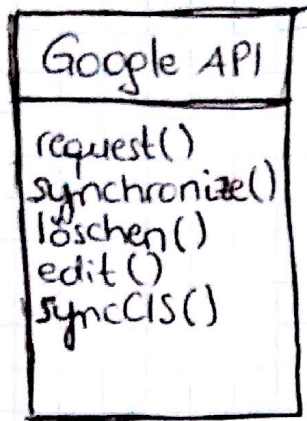 Google API
request()
synchronize()
löschen()
edit()
syncCIS()